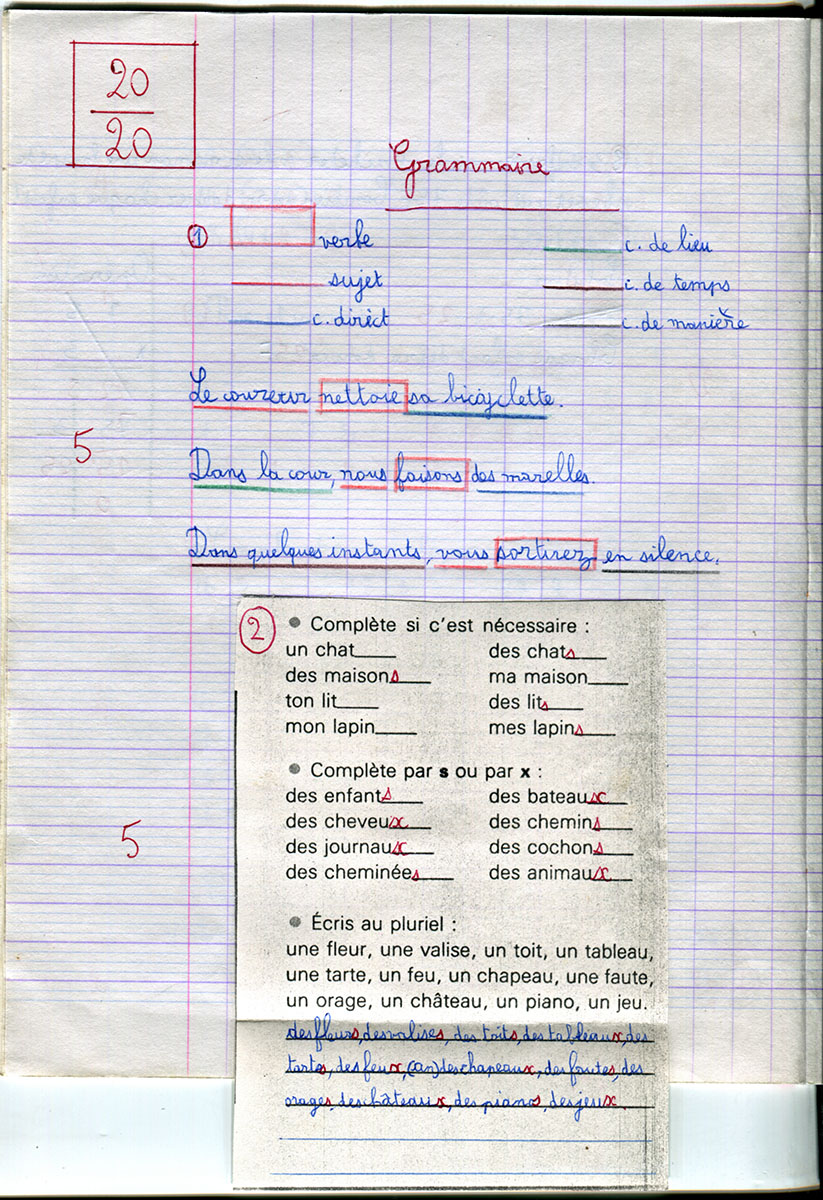 20
20
Grammaire
1 verbe c. de lieu
sujet c. de temps
c. dirèct c. de manière
Le coureur nettoie sa bicyclette.
5
Dans la cour, nous faisons des marelles.
Dans quelques instants, vous sortirez en silence.
2 • Complète si c'est nécessaire :
un chat____ des chats____
des maisons____ ma maison____
ton lit____ des lits____
mon lapin____ mes lapins____
• Complète par s ou par x :
des enfants____ des bateaux____
5
des cheveux____ des chemins____
des journaux____ des cochons____
des cheminées____ des animaux____
• Écris au pluriel :
une fleur, une valise, un toit, un tableau,
une tarte, un feu, un chapeau, une faute,
un orage, un château, un piano, un jeu.
des fleurs, des valises, des toits, des tableaux, des
tartes, des feux, (an) des chapeaux, des fautes, des
orages, des châteaux, des pianos, des jeux.